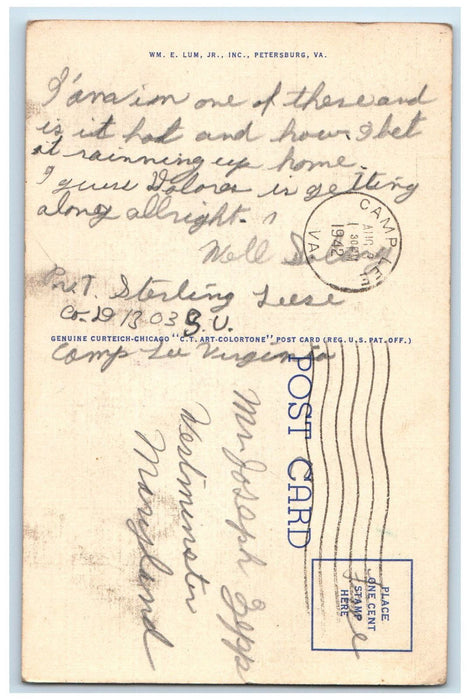 WM. E. LUM, JR., INC., PETERSBURG, VA.
I'am in one of these and
is it hot and how. I bet
it rainning up home.
I guess Dolores is getting
along allright.
Well So long
Pvt. Sterling Leese
Co-D 1303 S.U.
Camp Lee Virginia
GENUINE CURTEICH-CHICAGO "C.T. ART-COLORTONE" POST CARD (REG. U.S. PAT. OFF.)
CAMP LEE
AUG
1942
VA.
POST CARD
PLACE
ONE CENT
STAMP
HERE
Free
Mr. Joseph Zepp
Westminster
Maryland